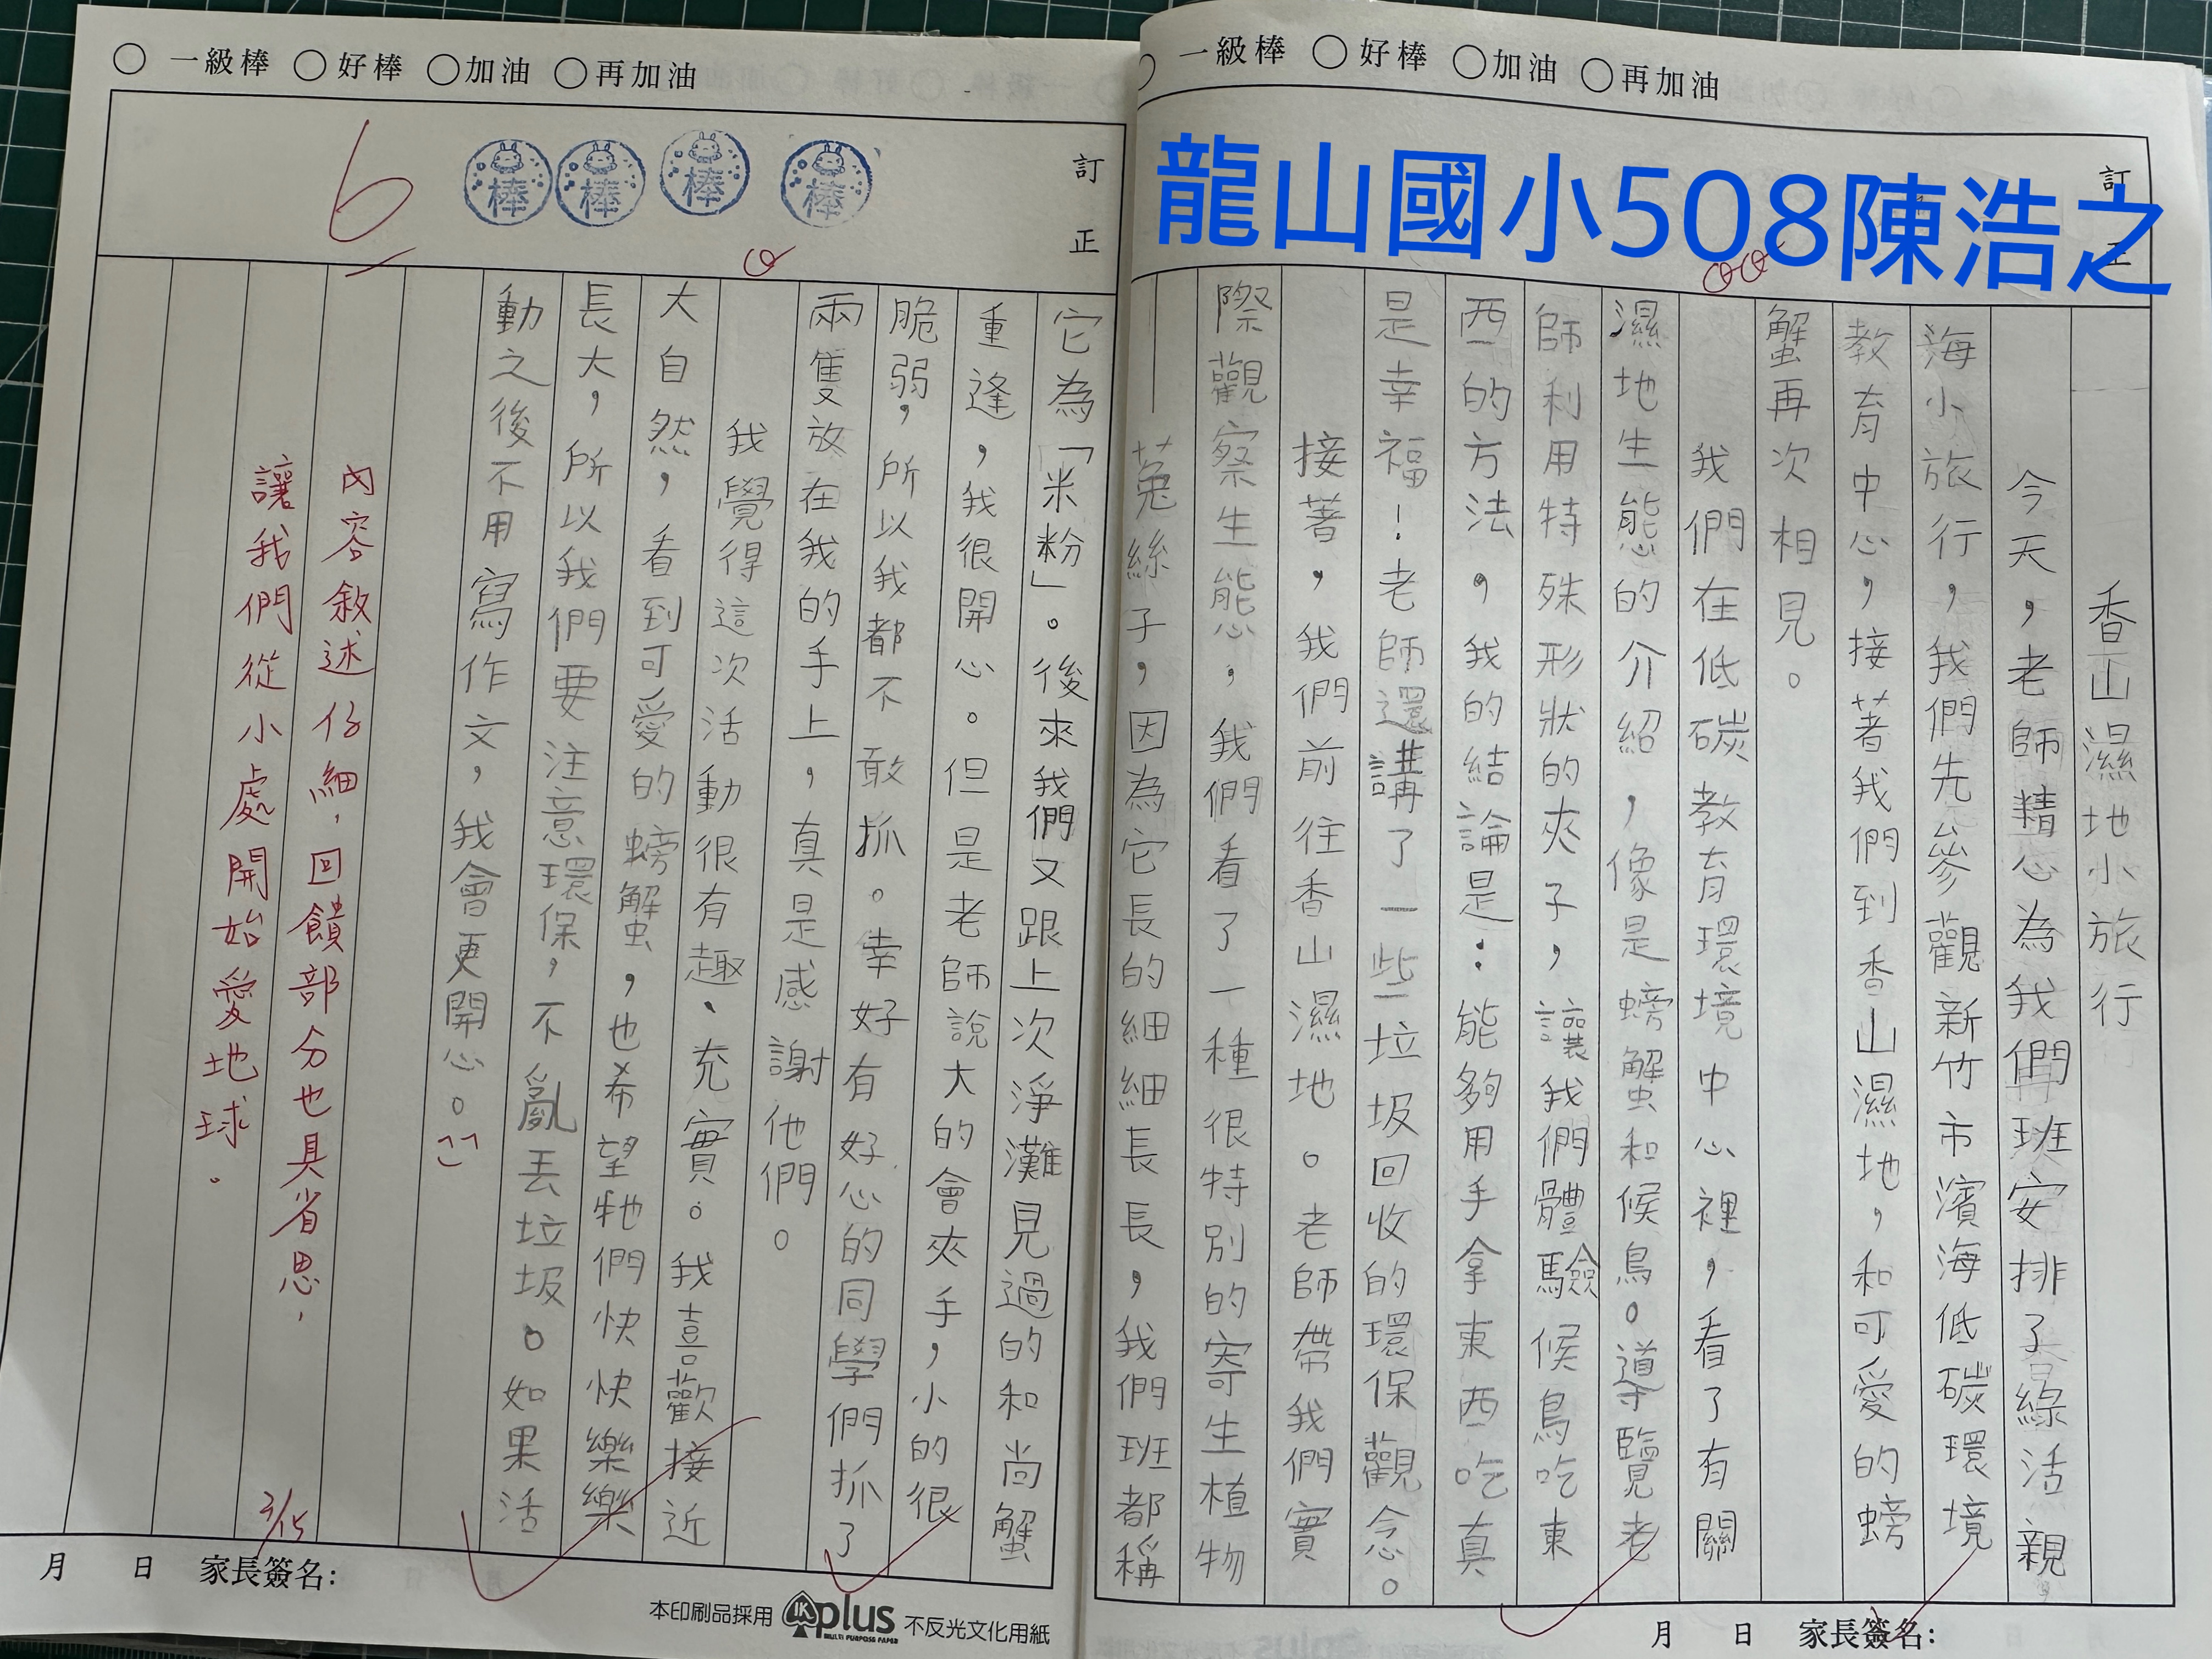 一級棒 好棒 加油 再加油
訂正
龍山國小508陳浩之
香山濕地小旅行
今天，老師精心為我們班安排了綠活親，
海小旅行，我們先參觀新竹市濱海低碳環境
教育中心，接著我們到香山濕地，和可愛的螃
蟹再次相見。
我們在低碳教育環境中心裡，看了有關
濕地生態的介紹，像是螃蟹和候鳥。導覽老
師利用特殊形狀的夾子，讓我們體驗候鳥吃東
西的方法，我的結論是：能夠用手拿東西吃真
是幸福！老師還講了一些垃圾回收的環保觀念。
接著，我們前往香山濕地。老師帶我們實
際觀察生態，我們看了一種很特別的寄生植物
——菟絲子，因為它長的細細長長，我們班都稱
月 日 家長簽名：
一級棒 好棒 加油 再加油
訂正
棒 棒 棒 棒
6
它為「米粉」。後來我們又跟上次淨灘見過的和尚蟹
重逢，我很開心。但是老師說大的會夾手，小的很
脆弱，所以我都不敢抓。幸好有好心的同學們抓了
兩隻放在我的手上，真是感謝他們。
我覺得這次活動很有趣、充實。我喜歡接近
大自然，看到可愛的螃蟹，也希望牠們快快樂樂
長大，所以我們要注意環保，不亂丟垃圾。如果活
動之後不用寫作文，我會更開心。
內容敘述仔細，回饋部分也具省思，
讓我們從小處開始愛地球。
3/15
月 日 家長簽名：
本印刷品採用 plus MULTI PURPOSE PAPER 不反光文化用紙